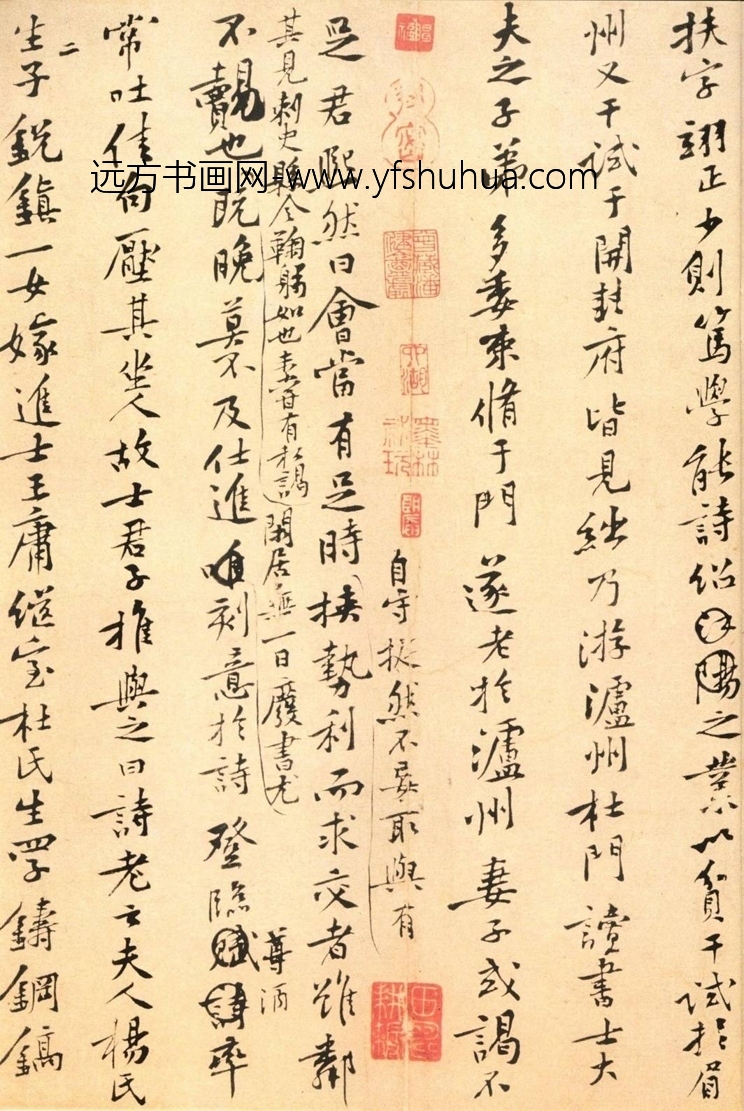 扶字翊正少則篤學能詩紹之業以貧干試於眉
州又干試于開封府皆見絀乃游瀘州杜門讀書士大
夫之子弟多委束脩于門遂老於瀘州妻子或謁不
自守挺然不妄取與有
足君熙然曰會當有足時挾勢利而求交者雖鄰
其見刺史縣令鞠躬如也未嘗有私謁閑居無一日廢書尤
不覿也既晚莫不及仕進唯刻意於詩登臨尊酒率
常吐佳句壓其坐人故士君子推與之曰詩老云夫人楊氏
生二子銳鎮一女嫁進士王庸繼室杜氏生四子鑄鋼鎬
远方书画网 www.yfshuhua.com